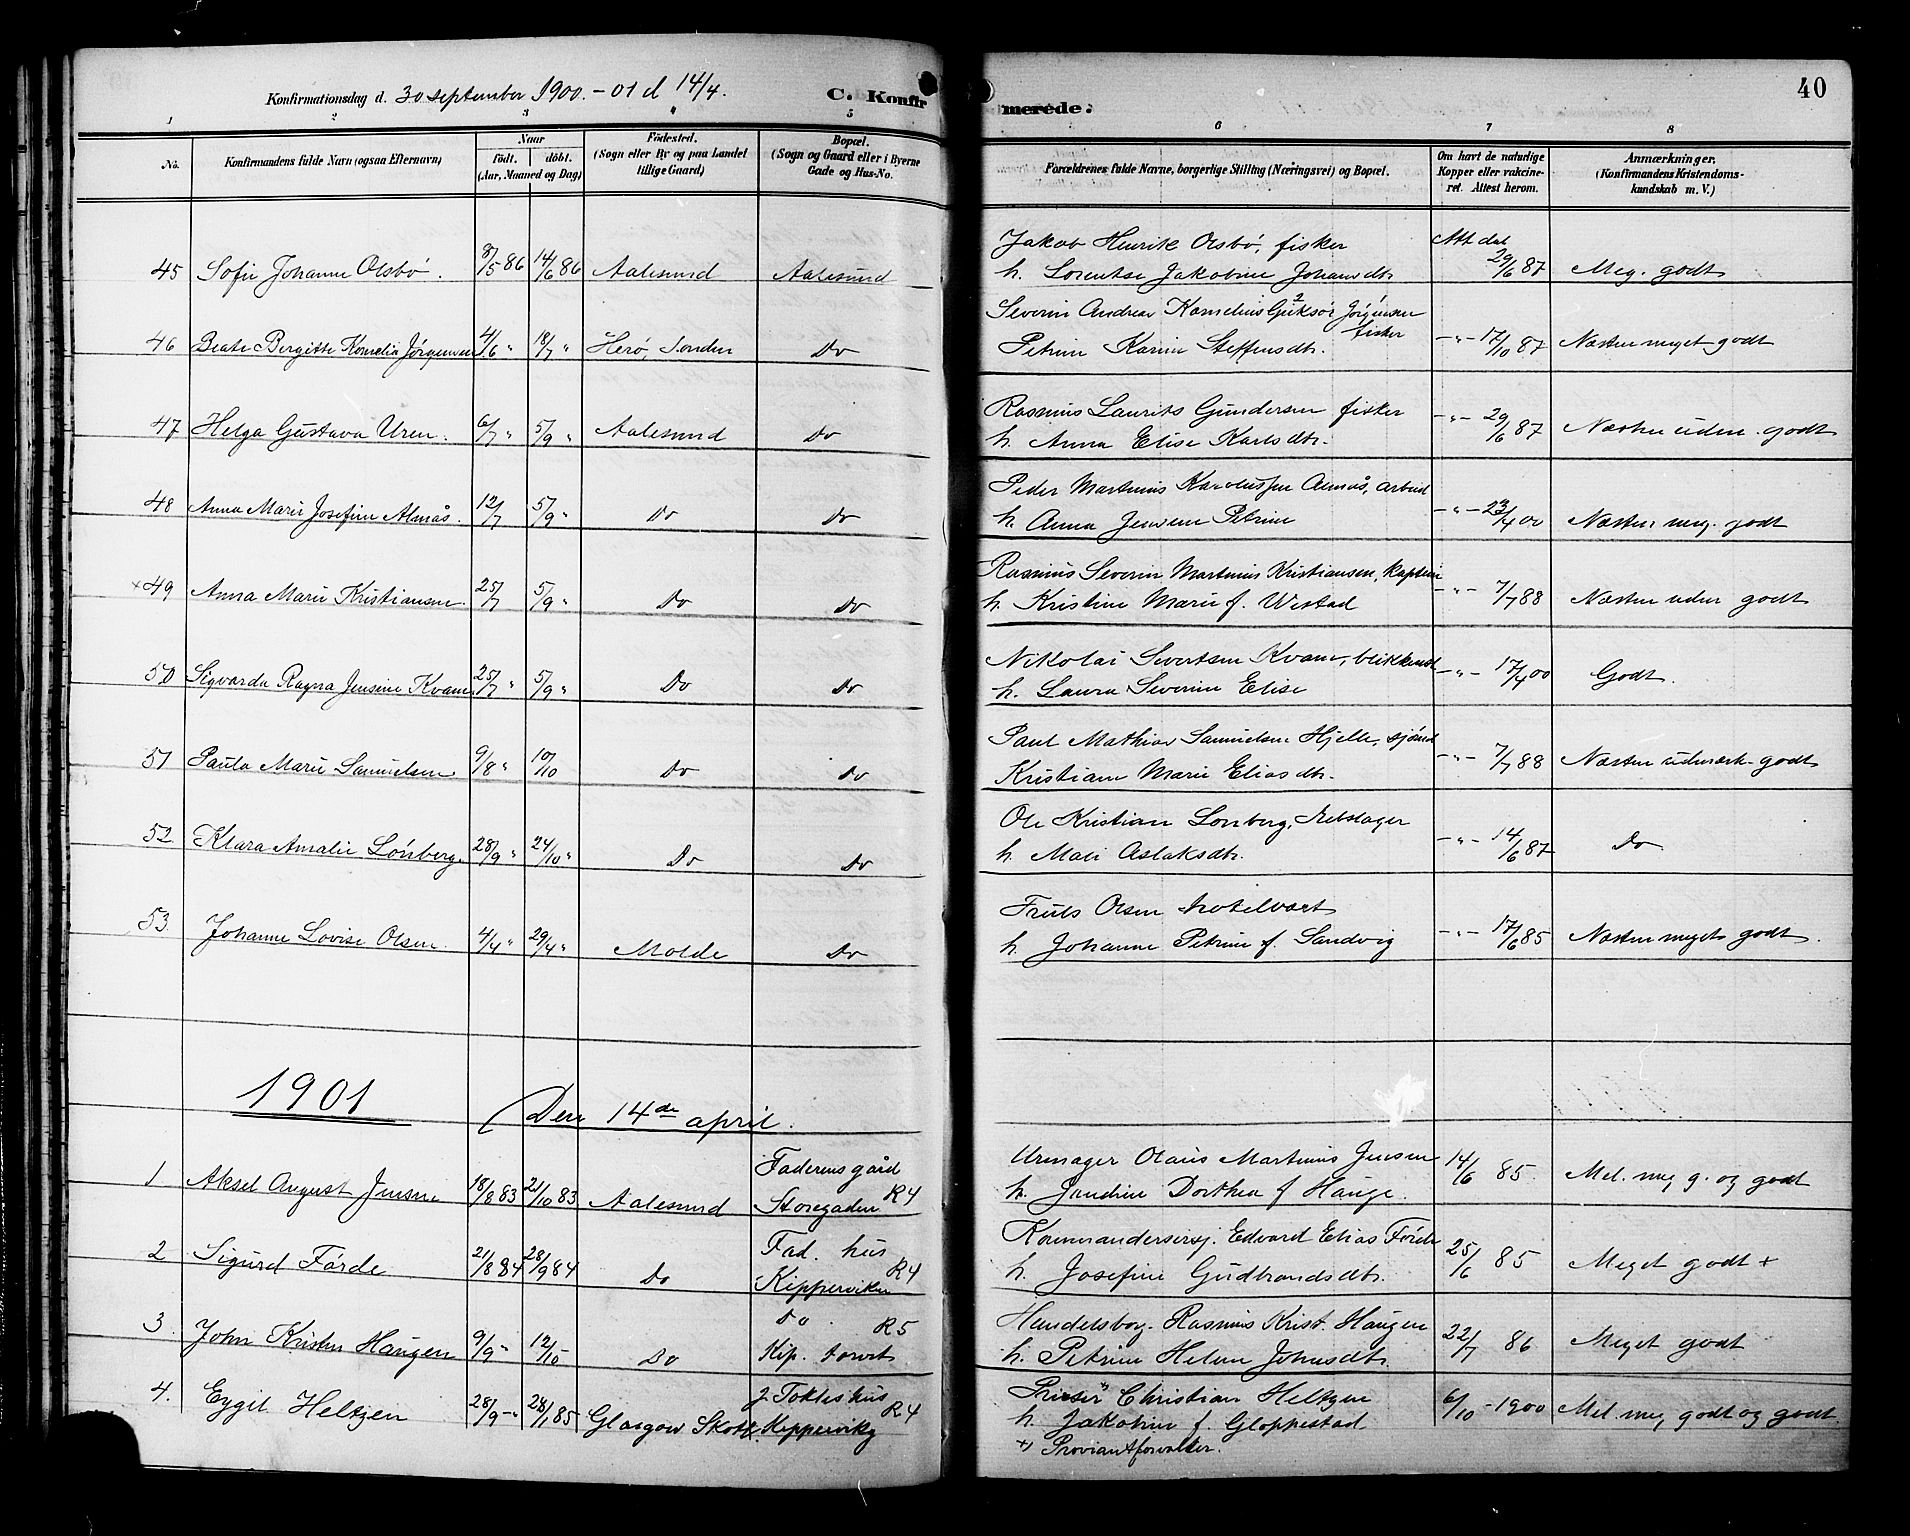 Konfirmationsdag d. 30 september 1900.-01 d 14/4. C. Konfirmerede. 40
1 2 3 4 5 6 7 8
No. Konfirmandens fulde Navn (ogsaa Efternavn) Naar født. døbt. (Aar, Maaned og Dag) Fødested. (Sogn eller By og paa Landet tillige Gaard) Bopæl. (Sogn og Gaard eller i Byerne Gade og Hus-No. Forældrenes fulde Navne, borgerlige Stilling (Næringsvei) og Bopæl. Om havt de naturlige Kopper eller vakcineret. Attest herom. Anmærkninger. (Konfirmandens Kristendomskundskab m. V.)
Jakob Henrik Olsbø, fisker Att dat
45 Sofie Johanne Olsbø. 8/5 86 14/6 86 Aalesund Aalesund h. Lorentse Jakobine Johansdtr 29/6 87 Meg. godt
Severin Andreas Kornelius Jørgensen fisker
46 Beate Bergitte Kornelia Jørgensen 4/6 " 18/7 " Herø, Søndm Do Petrine Karine Steffensdtr. -"- 17/10 87 Næsten meget godt
Rasmus Laurits Gundersen fisker
47 Helga Gustava Uren. 6/7 " 5/9 " Aalesund Do h. Anna Elise Karlsdtr. -"- 29/6 87 Næsten udm. godt
Peder Martinus Karolussen Almås, arbeid
48 Anna Marie Josefine Almås. 12/7 5/9 " Do Do h. Anna Jensine Petrine -"- 23/4 00 Næsten meg. godt
Rasmus Severin Martinus Kristiansen, kaptein
×49 Anna Marie Kristiansen. 25/7 5/9 " Do Do h. Kristine Marie f. Westad -"- 7/7 88 Næsten udm godt
Nikolai Sivertsen Kvam, blikkensl
50 Sigvarda Ragna Jensine Kvam 25/7 " 5/9 " Do Do h. Laura Severine Elise -"- 17/4 00 Godt.
Paul Mathias Samuelsen Hjelle, sjømd
51 Paula Marie Samuelsen 9/8 " 10/10 Do Do Kristiane Marie Eliasdtr. -"- 7/7 88 Næsten udmærk. godt
Ole Kristian Lønberg, Rebslager
52. Klara Amalie Lønberg. 28/9 " 24/10 " Do Do h. Mali Aslaksdtr. -"- 14/6 87 Do
Truls Olsen hotelvært
53. Johanne Lovise Olsen. 4/4 " 29/4 " Molde Do h. Johanne Petrine f. Sandvig -"- 17/6 85 Næsten meget godt.
1901 Den 14de april.
Faderens gård Urmager Olaus Martinus Jensen
1 Aksel August Jensen 18/8 83 21/10 83 Aalesund Storegaden R4 h. Jandine Dorthea f Hauge. 14/6 85. Mel. meg g. og godt
Fad. hus Kommandersersj. Edvard Elias Førde
2 Sigurd Førde 21/8 84 28/9 84 Do Kipperviken R4 h. Josefine Gudbrandsdtr. 25/6 85 Meget godt +
Do. R5 Handelsborg. Rasmus Krist. Haugen
3. John Kristen Haugen 9/9 - 12/10 - Do Kip. torvet h. Petrine Helene Johnsdtr. 22/7 86 Meget godt
J. Toktes hus Christian Heltzen
4. Eygil Heltzen 28/9 - 28/1 85 Glasgow Skotl. Kippervikg R4 h. Jakobine f. Gloppestad 6/10 - 1900 Mel. meg godt og godt
+) Proviantforvalter.